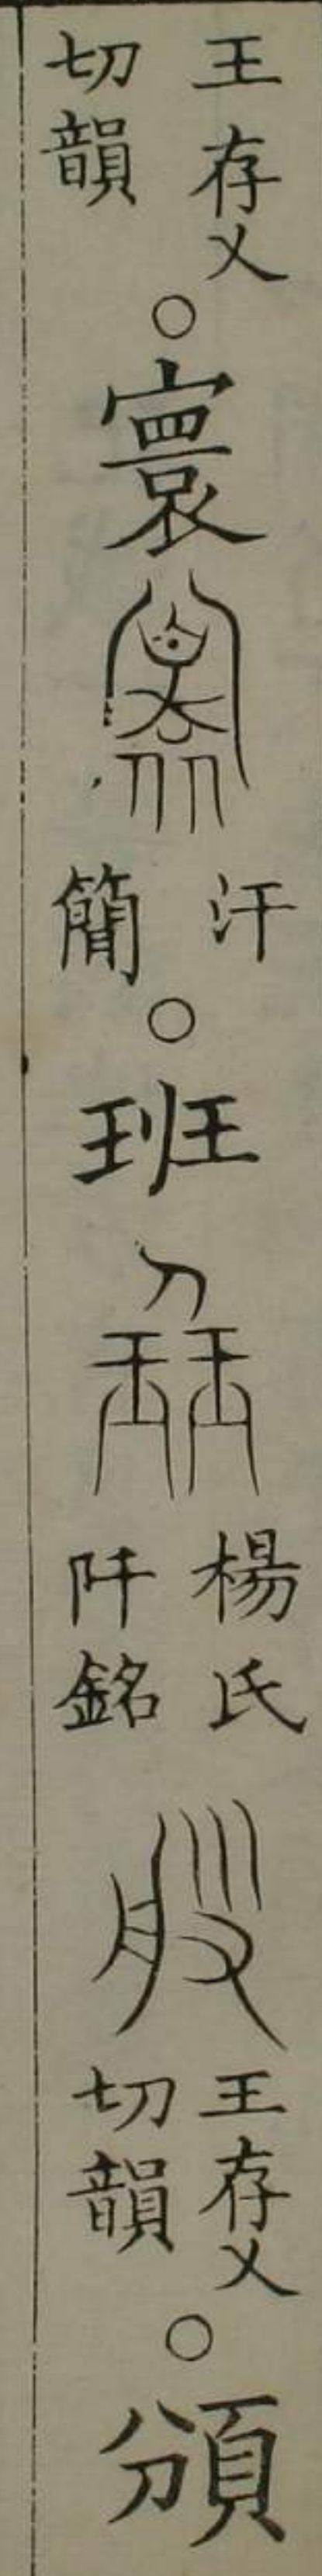 王存乂切韻○寰汗簡○班楊氏阡銘王存乂切韻○頒